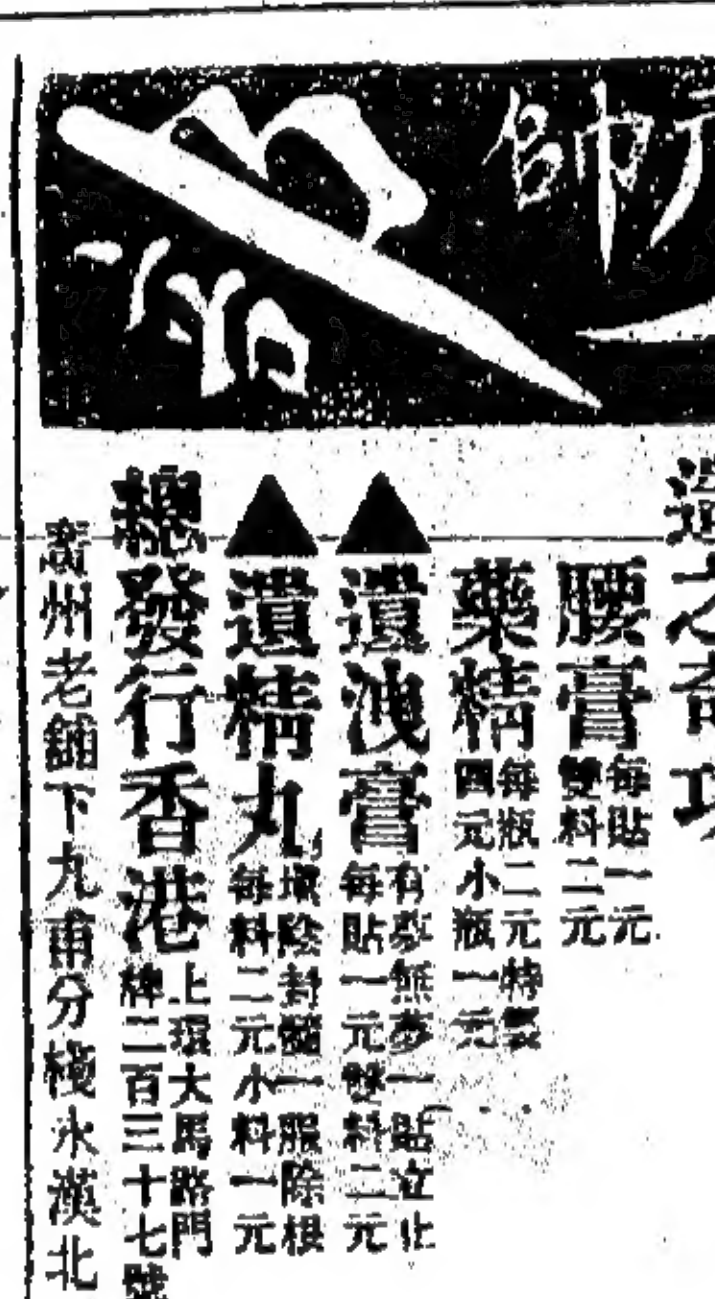 帥
造之奇功
腰膏 每貼一元 雙料二元
藥精 每瓶二元特製 四元小瓶一元
▲遺洩膏 有夢無夢一貼立止 每貼一元雙料二元
▲遺精丸 填陰封髓一服除根 每料二元小料一元
總發行香港 上環大馬路門 牌二百三十七號
廣州老舖下九甫分棧永漢北